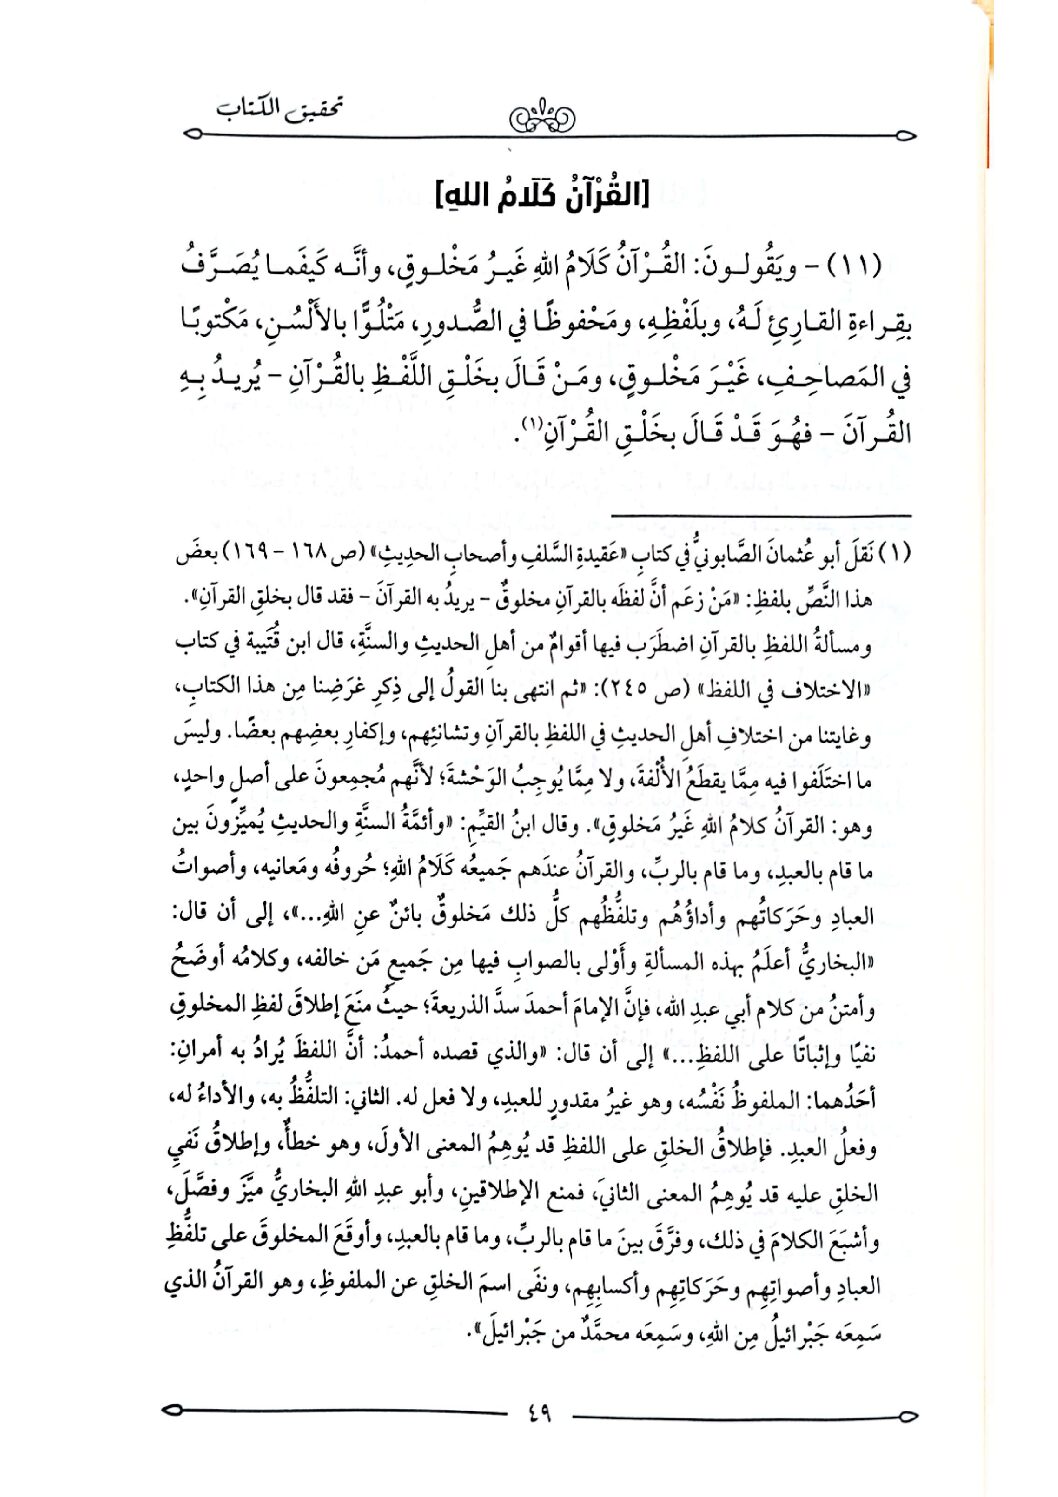 تحقيق الكتاب
[القُرْآنُ كَلَامُ اللهِ]
(١١) - ويَقُولـونَ: القُـرْآنُ كَلَامُ اللهِ غَيـرُ مَخْلـوقٍ، وأنَّـه كَيفَمـا يُصَـرَّفُ
بقِـراءةِ القـارِئِ لَـهُ، وبلَفْظِهِ، ومَحْفوظًا في الصُّدورِ، مَتْلُوًّا بالأَلْسُنِ، مَكْتوبًا
في المَصاحِـفِ، غَيْرَ مَخْلوقٍ، ومَنْ قَالَ بخَلْقِ اللَّفْظِ بالقُرْآنِ - يُريـدُ بِـهِ
القُـرآنَ - فهُـوَ قَـدْ قَالَ بخَلْقِ القُرْآنِ(١).
(١) نَقلَ أبو عُثمانَ الصَّابونيُّ في كتابِ «عَقيدةِ السَّلفِ وأصحابِ الحَديثِ» (ص ١٦٨ - ١٦٩) بعضَ
هذا النَّصِّ بلفظِ: «مَنْ زعَم أنَّ لفظَه بالقرآنِ مخلوقٌ - يريدُ به القرآنَ - فقد قال بخلقِ القرآنِ».
ومسألةُ اللفظِ بالقرآنِ اضطَرَب فيها أقوامٌ من أهلِ الحديثِ والسنَّةِ، قال ابن قُتَيبة في كتاب
«الاختلاف في اللفظ» (ص ٢٤٥): «ثم انتهى بنا القولُ إلى ذِكرِ غرَضِنا مِن هذا الكتابِ،
وغايتنا من اختلافِ أهلِ الحديثِ في اللفظِ بالقرآنِ وتشانئِهم، وإكفارِ بعضِهم بعضًا. وليسَ
ما اختَلَفوا فيه مِمَّا يقطَعُ الأُلْفةَ، ولا مِمَّا يُوجِبُ الوَحْشةَ؛ لأنَّهم مُجمِعونَ على أصلٍ واحدٍ،
وهو: القرآنُ كلامُ اللهِ غَيرُ مَخلوقٍ». وقال ابنُ القيِّمِ: «وأئمَّةُ السنَّةِ والحديثِ يُميِّزونَ بين
ما قام بالعبدِ، وما قام بالربِّ، والقرآنُ عندَهم جَميعُه كَلَامُ اللهِ؛ حُروفُه ومَعانيه، وأصواتُ
العبادِ وحَرَكاتُهم وأداؤُهُم وتلفُّظُهم كلُّ ذلك مَخلوقٌ بائنٌ عنِ اللهِ...»، إلى أن قال:
«البخاريُّ أعلَمُ بهذه المسألةِ وأَوْلى بالصوابِ فيها مِن جَميعِ مَن خالفه، وكلامُه أوضَحُ
وأمتنُ من كلام أبي عبدِ الله، فإنَّ الإمامَ أحمدَ سدَّ الذريعةَ؛ حيثُ منَعَ إطلاقَ لفظِ المخلوقِ
نفيًا وإثباتًا على اللفظِ...» إلى أن قال: «والذي قصده أحمدُ: أنَّ اللفظَ يُرادُ به أمرانِ:
أحَدُهما: الملفوظُ نَفْسُه، وهو غيرُ مقدورٍ للعبدِ، ولا فعل له. الثاني: التلفُّظُ به، والأداءُ له،
وفعلُ العبدِ. فإطلاقُ الخلقِ على اللفظِ قد يُوهِمُ المعنى الأولَ، وهو خطأٌ، وإطلاقُ نَفيِ
الخلقِ عليه قد يُوهِمُ المعنى الثانيَ، فمنع الإطلاقينِ، وأبو عبدِ اللهِ البخاريُّ ميَّزَ وفصَّلَ،
وأشبَعَ الكلامَ في ذلك، وفرَّقَ بينَ ما قام بالربِّ، وما قام بالعبدِ، وأوقَعَ المخلوقَ على تلفُّظِ
العبادِ وأصواتِهم وحَرَكاتِهم وأكسابِهِم، ونفَى اسمَ الخلقِ عن الملفوظِ، وهو القرآنُ الذي
سَمِعَه جَبْرائيلُ مِن اللهِ، وسَمِعَه محمَّدٌ من جَبْرائيلَ».
٤٩